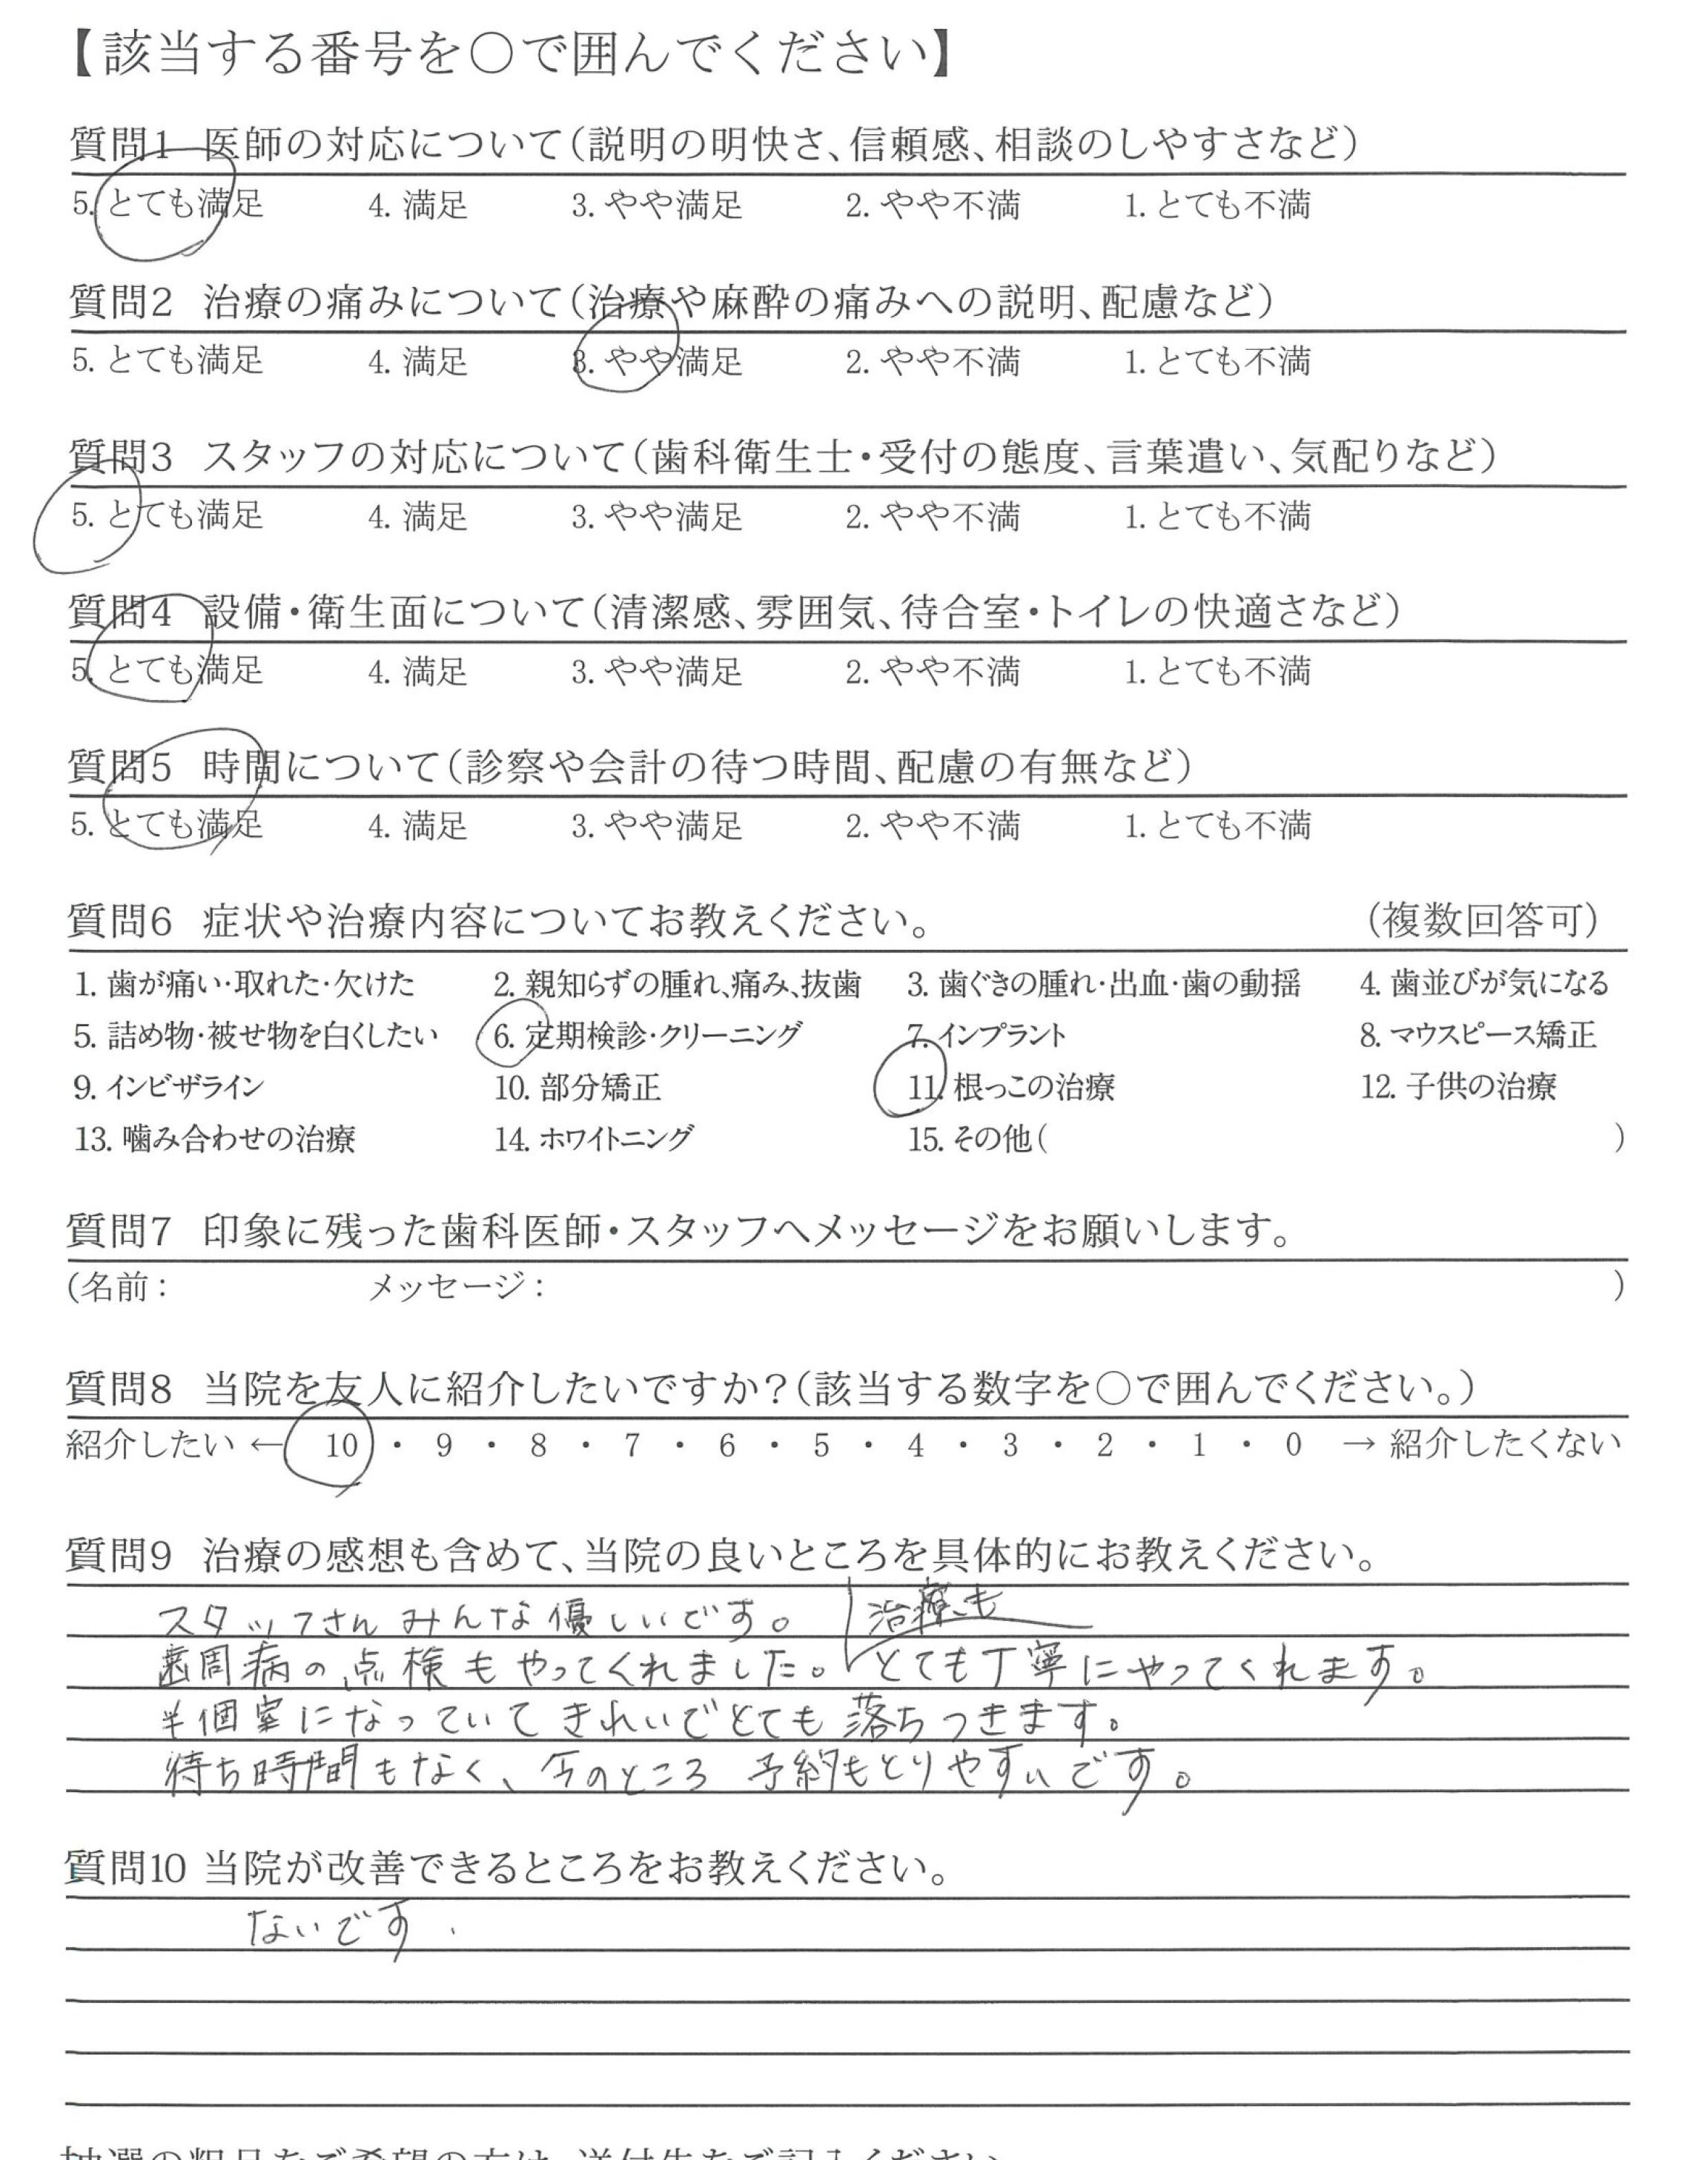 【該当する番号を〇で囲んでください】
質問1 医師の対応について(説明の明快さ、信頼感、相談のしやすさなど)
5. とても満足 4. 満足 3. やや満足 2. やや不満 1. とても不満
質問2 治療の痛みについて(治療や麻酔の痛みへの説明、配慮など)
5. とても満足 4. 満足 3. やや満足 2. やや不満 1. とても不満
質問3 スタッフの対応について(歯科衛生士・受付の態度、言葉遣い、気配りなど)
5. とても満足 4. 満足 3. やや満足 2. やや不満 1. とても不満
質問4 設備・衛生面について(清潔感、雰囲気、待合室・トイレの快適さなど)
5. とても満足 4. 満足 3. やや満足 2. やや不満 1. とても不満
質問5 時間について(診察や会計の待つ時間、配慮の有無など)
5. とても満足 4. 満足 3. やや満足 2. やや不満 1. とても不満
質問6 症状や治療内容についてお教えください。 (複数回答可)
1. 歯が痛い・取れた・欠けた 2. 親知らずの腫れ、痛み、抜歯 3. 歯ぐきの腫れ・出血・歯の動揺 4. 歯並びが気になる
5. 詰め物・被せ物を白くしたい 6. 定期検診・クリーニング 7. インプラント 8. マウスピース矯正
9. インビザライン 10. 部分矯正 11. 根っこの治療 12. 子供の治療
13. 噛み合わせの治療 14. ホワイトニング 15. その他( )
質問7 印象に残った歯科医師・スタッフへメッセージをお願いします。
(名前: メッセージ: )
質問8 当院を友人に紹介したいですか?(該当する数字を〇で囲んでください。)
紹介したい ← 10 ・ 9 ・ 8 ・ 7 ・ 6 ・ 5 ・ 4 ・ 3 ・ 2 ・ 1 ・ 0 → 紹介したくない
質問9 治療の感想も含めて、当院の良いところを具体的にお教えください。
スタッフさんみんな優しいです。 治療も
歯周病の点検もやってくれました。 とても丁寧にやってくれます。
半個室になっていてきれいでとても落ちつきます。
待ち時間もなく、今のところ 予約もとりやすいです。
質問10 当院が改善できるところをお教えください。
ないです.
抽選の粗品をご希望の方は、送付先をご記入ください